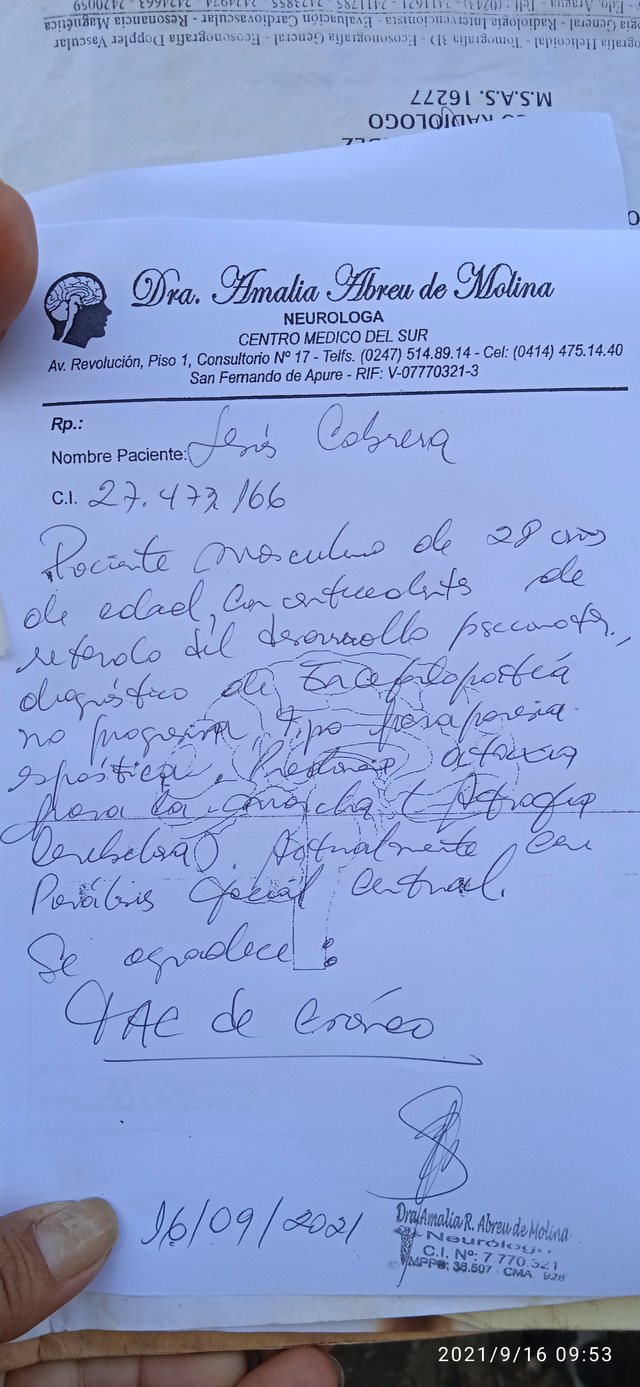 - Edo. Aragua - Telf.: (0243)
gía General - Radiología Intervencionista - Evaluación Cardiovascular - Resonancia Magnética
ografía Helicoidal - Tomografía 3D - Ecosonografía General - Ecosonografía Doppler Vascular
M.S.A.S. 16277
RADIOLOGO
Dra. Amalia Abreu de Molina
NEUROLOGA
CENTRO MEDICO DEL SUR
Av. Revolución, Piso 1, Consultorio Nº 17 - Telfs. (0247) 514.89.14 - Cel: (0414) 475.14.40
San Fernando de Apure - RIF: V-07770321-3
Rp.:
Nombre Paciente: Jesús Cabrera
C.I. 27.472166
Paciente masculino de 28 años
de edad, con antecedente de
retardo del desarrollo psicomotor,
diagnóstico de Encefalopatía
no progresiva, tipo paraparesia
espástica. Presenta ataxia
para la marcha (Atrofia
Cerebelosa). Actualmente con
Parálisis facial central.
Se agradece:
TAC de cráneo
16/09/2021
Dra. Amalia R. Abreu de Molina
Neurólogo
C.I. Nº: 7 770.321
MPPS: 36.507 - CMA 928
2021/9/16 09:53